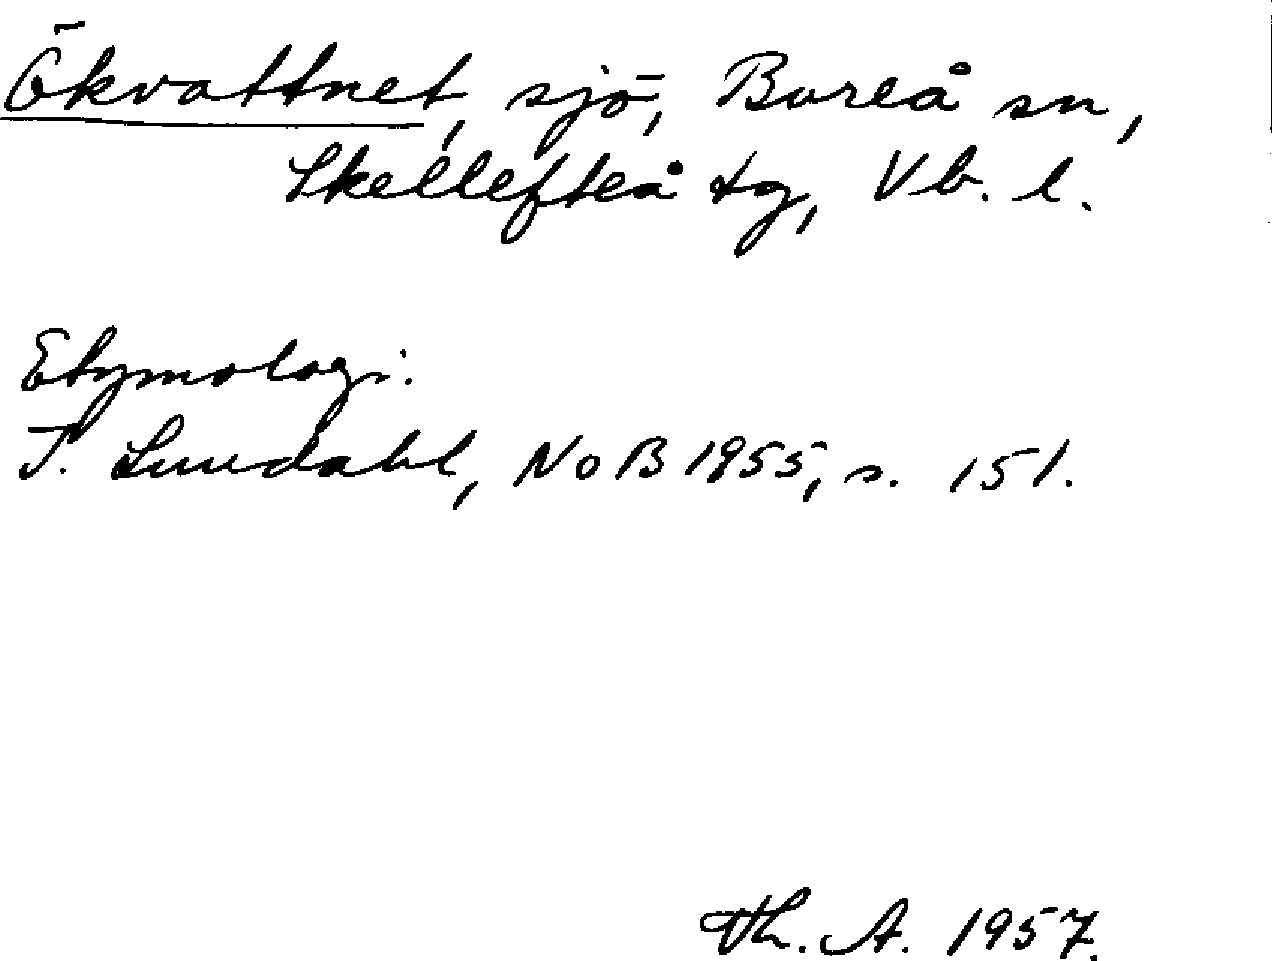 Ökvattnet, sjö, Bureå sn,
Skellefteå tg, Vb. l.
Etymologi.
S. Lundahl, NoB 1955, s. 151.
Th. A. 1957.